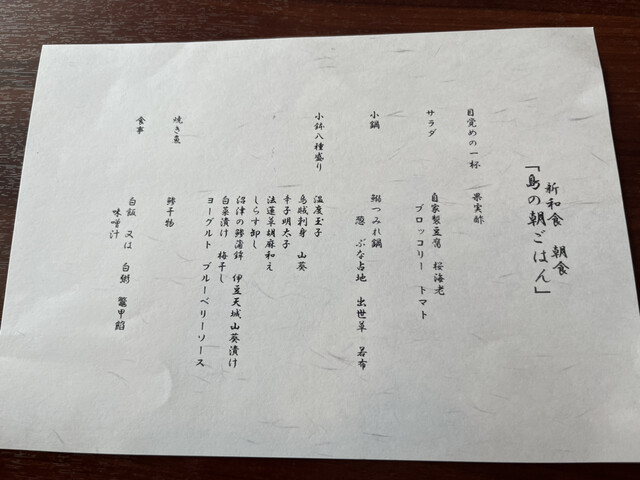 新和食 朝食
「島の朝ごはん」
目覚めの一杯 果実酢
サラダ 自家製豆腐 桜海老
ブロッコリー トマト
小鍋 鰯つみれ鍋
葱 ぶな占地 出世草 若布
小鉢八種盛り 温度玉子
烏賊利身 山葵
辛子明太子
法蓮草胡麻和え
しらす卸し
沼津の鯵蒲鉾 伊豆天城山葵漬け
白菜漬け 梅干し
ヨーグルト ブルーベリーソース
焼き魚 鯵干物
食事 白飯 又は 白粥 鼈甲餡
味噌汁